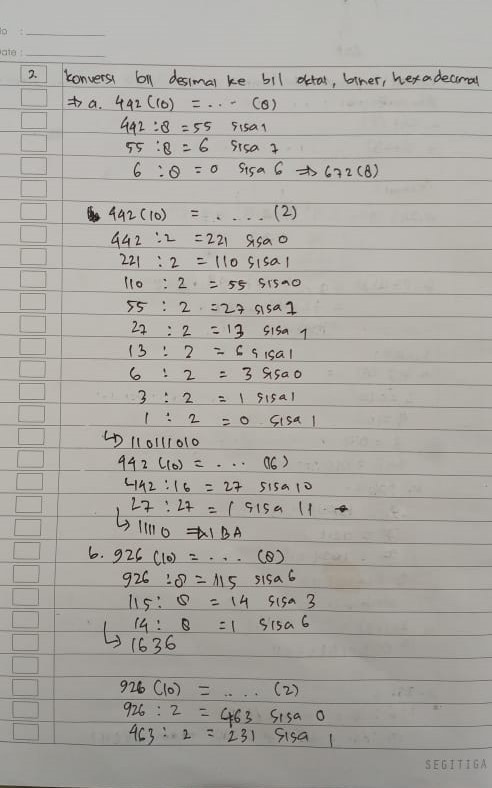 No :
Date :
2. konversi bil desimal ke bil oktal, biner, hexadecimal
⇒ a. 442 (10) = ... (8)
442 : 8 = 55 sisa 1
55 : 8 = 6 sisa 7
6 : 8 = 0 sisa 6 ⇒ 672 (8)
442 (10) = ..... (2)
442 : 2 = 221 sisa 0
221 : 2 = 110 sisa 1
110 : 2 = 55 sisa 0
55 : 2 = 27 sisa 1
27 : 2 = 13 sisa 1
13 : 2 = 6 sisa 1
6 : 2 = 3 sisa 0
3 : 2 = 1 sisa 1
1 : 2 = 0 sisa 1
↳ 110111010
442 (10) = .... (16)
442 : 16 = 27 sisa 10
27 : 27 = 1 sisa 11
↳ 11110 ⇒ 1BA
b. 926 (10) = ... (8)
926 : 8 = 115 sisa 6
115 : 8 = 14 sisa 3
14 : 8 = 1 sisa 6
↳ 1636
926 (10) = .... (2)
926 : 2 = 463 sisa 0
463 : 2 = 231 sisa 1
SEGITIGA